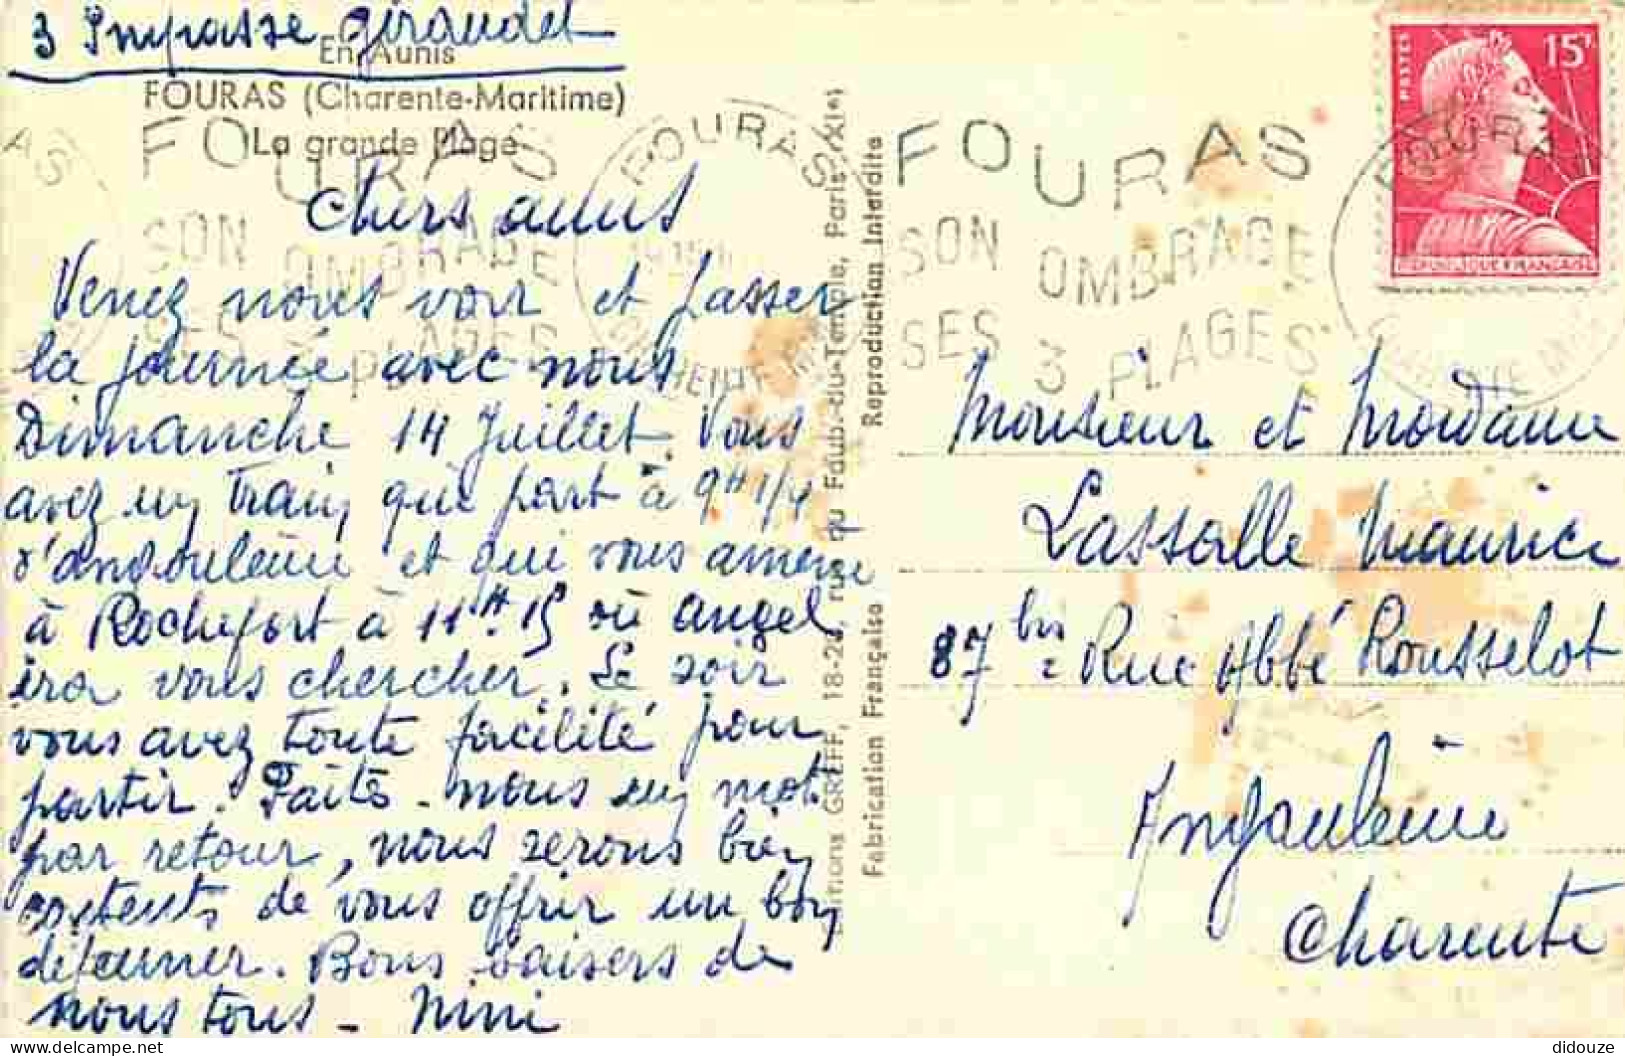 3 Impasse Giraudet
En Aunis
FOURAS (Charente-Maritime)
La grande Plage
Chers amis
Venez nous voir et passer
la journée avec nous
Dimanche 14 Juillet. Vous
avez un train qui part à 9H 1/4
d'angoulême et qui vous amène
à Rochefort à 11H.15 où angel
ira vous chercher. Le soir
vous avez toute facilité pour
partir. Faites-nous un mot
par retour, nous serons bien
contents de vous offrir un bon
déjeuner. Bons baisers de
nous tous - Nini
FOURAS
SON OMBRAGE
SES 3 PLAGES
FOURAS
CHARENTE MME
Editions GREFF, 18-20, rue du Faub.-du-Temple, Paris (XIe)
Fabrication Française Reproduction Interdite
FOURAS
SON OMBRAGE
SES 3 PLAGES
POSTES
15F
REPUBLIQUE FRANÇAISE
Monsieur et Madame
Lassalle Maurice
87 bis Rue Abbé Rousselot
Angoulême
Charente
didouze